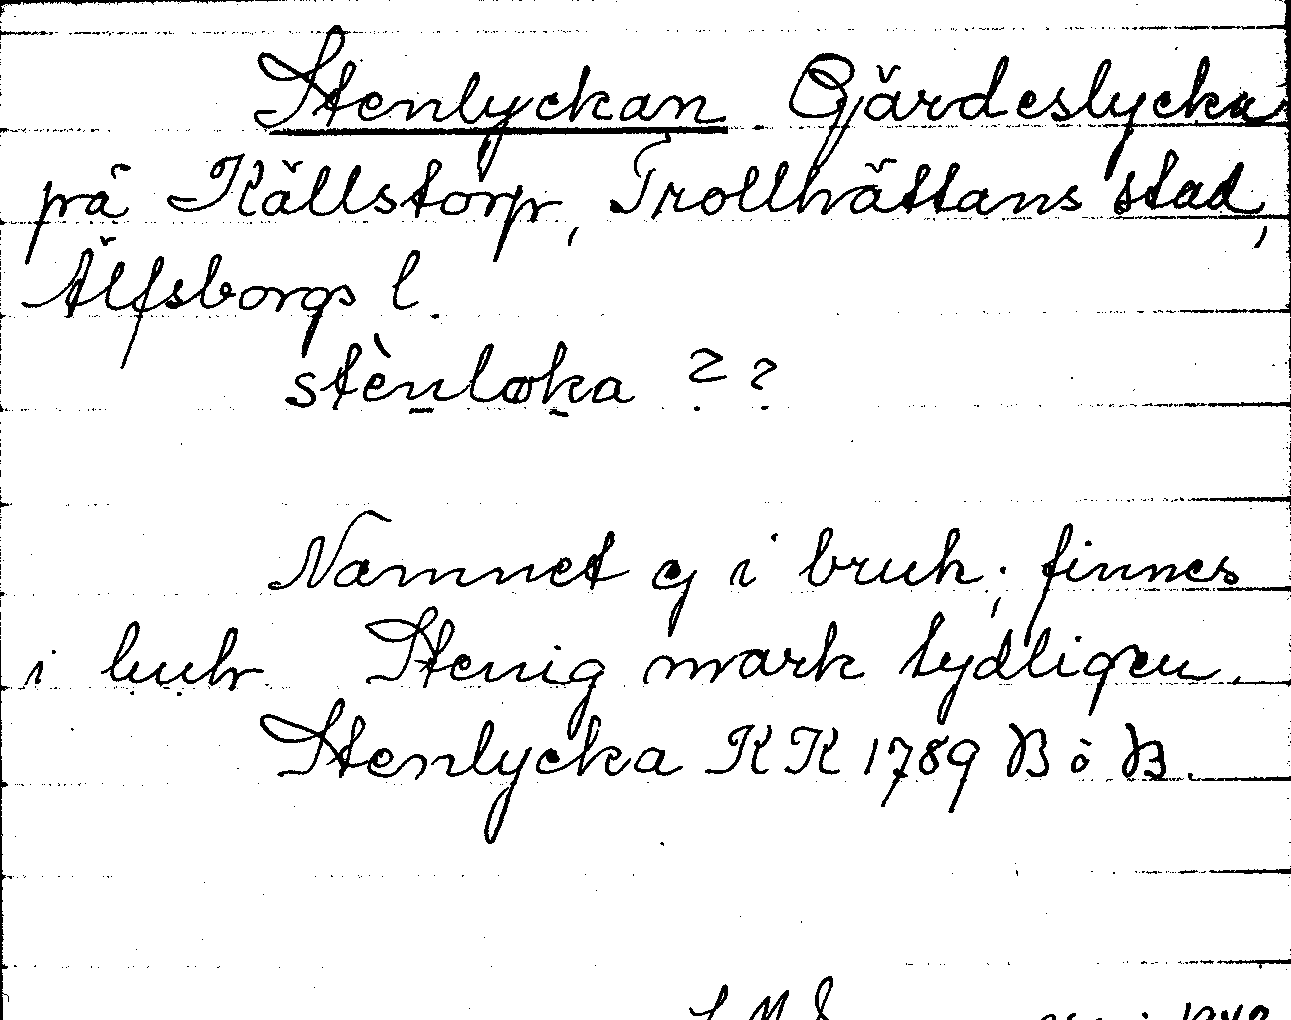 Stenlyckan Gärdeslycka
på Källstorp, Trollhättans stad,
Älfsborgs l.
stènløka ? ?
Namnet ej i bruk; finnes
i Stenig mark tydligen.
Stenlycka KK 1789 B ö B.